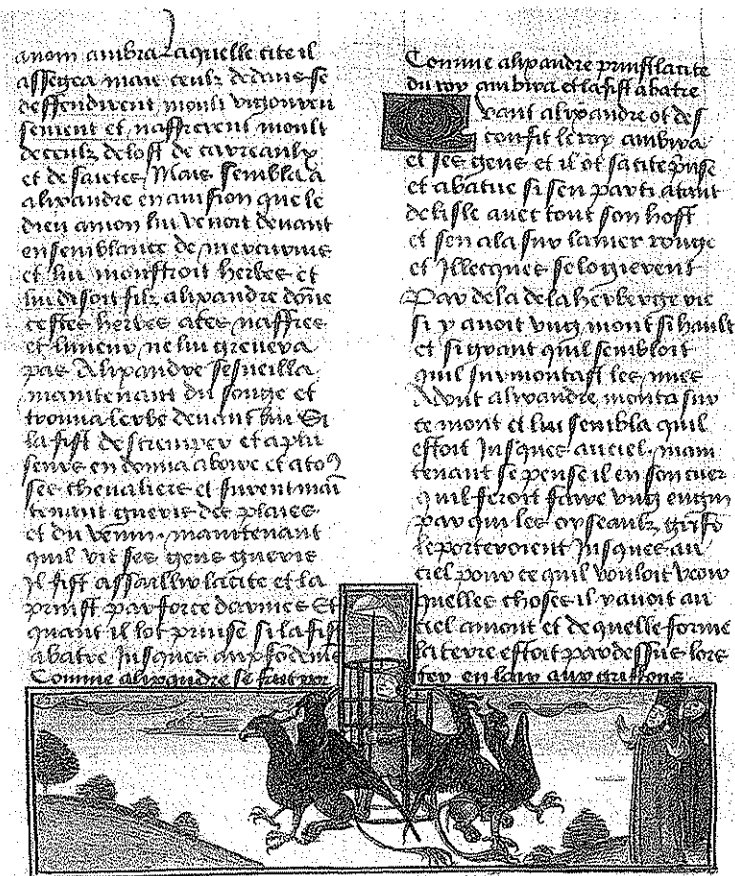 anom ambra laquelle cite il
assegea mais ceulz dedans se
deffendirent moult vigoureu
sement et naffrerent moult
de ceulz de lost de carreaulx
et de saiettes Mais sembla a
alixandre en avision que le
dieu amon lui venoit devant
en semblance de mercurius
et lui monstroit herbes et
lui disoit filz alixandre done
cestes herbes a tes naffres
et li venin ne lui grevera
pas Alixandre sesveilla
maintenant du songe et
trouva lerbe devant lui Si
la fist destremper et a plu
seurs en donna a boire et a to9
ses chevaliers et furent mai
tenant gueris des plaies
et du venin. maintenant
quil vit ses gens gueris
Il fist assaillir la cite et la
prinst par force darmes Et
quant il lot prinse si la fist
abatre Jusques aux fondemens
Comme alixandre se fait por
Comme alixandre prinst la cite
du roy ambira et la fist abatre
vant alixandre ot des
confit le roy ambira
et ses gens et il ot sa cite prise
et abatue si sen parti atant
de lisle avec tout son host
et sen ala sur la mer rouge
et Illecques se logierent
Par dela de la herbergerie
si y avoit ung mont si hault
et si grant quil sembloit
quil surmontast les nues
Adont alixandre monta sur
ce mont et lui sembla quil
estoit Jusques au ciel. main
tenant se pense il en son cuer
quil feroit faire ung engin
par qui les oyseaulz grifo
le porteroient Jusques au
ciel pour ce quil vouloit veoir
quelles choses il y avoit au
ciel amont et de quelle forme
la terre estoit par dessus lors
ter en lair aux griffons